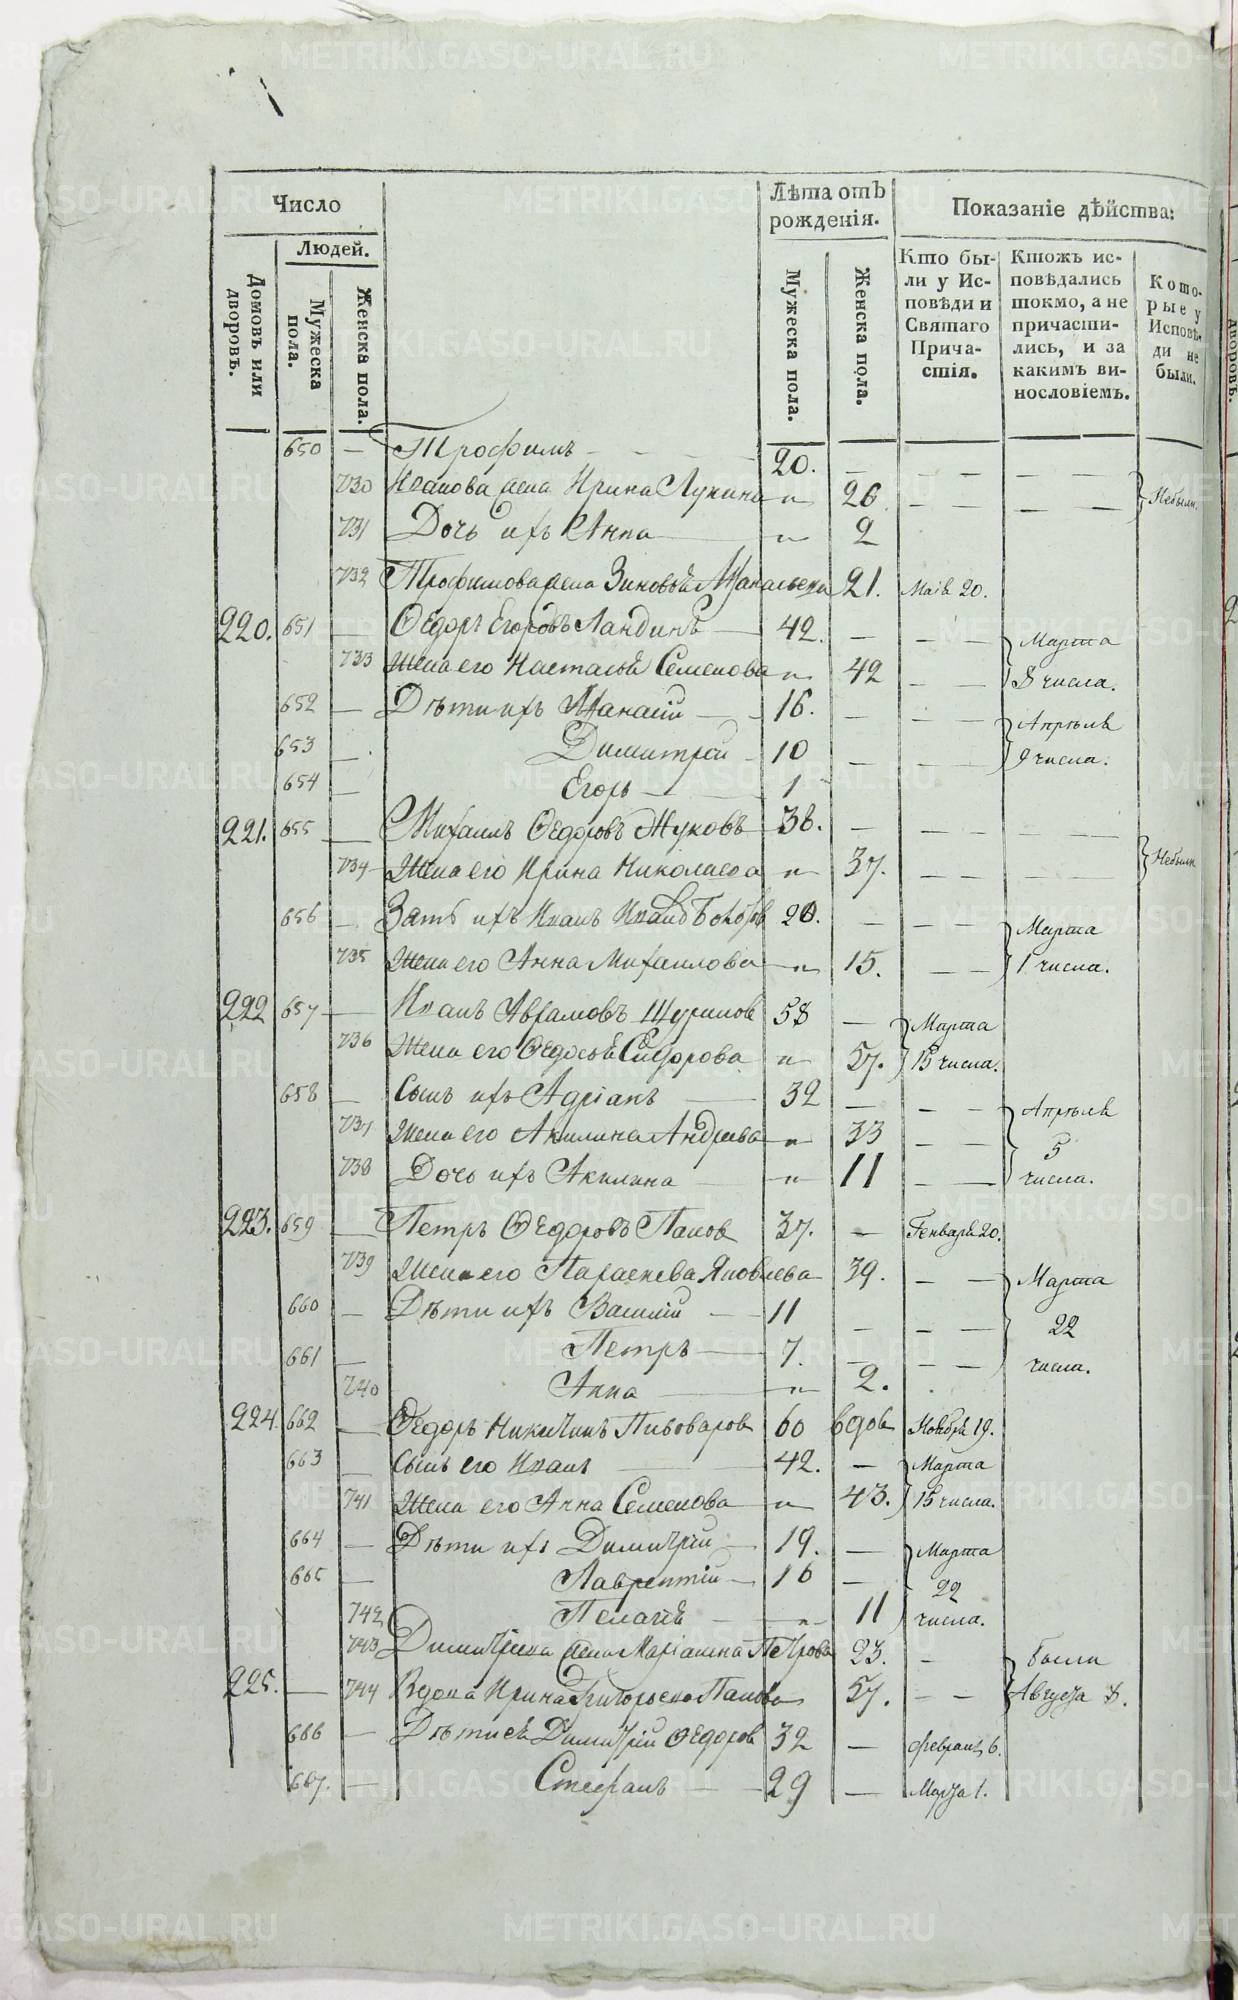 Число
Лѣта отъ рожденія.
Показаніе дѣйства:
Людей.
Домовъ или дворовъ.
Мужеска пола.
Женска пола.
Мужеска пола.
Женска пола.
Кто бы-
ли у Ис-
повѣди и
Святаго
Прича-
стія.
Ктожъ ис-
повѣдались
токмо, а не
причасти-
лись, и за
какимъ ви-
нословіемъ.
Кото-
рые у
Исповѣ-
ди не
были.
650 — Трофимъ — 20. —
730 Иванова жена Ирина Лукина — „ 26. Небыли.
731 Дочь ихъ Анна — „ 2
732 Трофимова жена Зиновья 21. Маія 20.
220. 651 — Ѳедоръ Егоровъ Ландинъ — 42. — Марта
733 Жена его Наталья Семенова „ 42 8 числа.
652 — Дѣти ихъ Афанасій — 16. — Апрѣля
653 — Димитрій — 10 — 9 числа.
654 — Егоръ — 1
221. 655 — Михаилъ Ѳедоровъ Жуковъ 38. —
734 Жена его Ирина Николаева „ 37. Небыли
656 — Зять ихъ Иванъ Ивановъ 20. — Марта
735 Жена его Анна Михаилова — „ 15. 1 числа.
222 657 — Иванъ Аврамовъ 58 — Марта
736 Жена его Ѳедосья Сидорова „ 57. 15 числа.
658 — Сынъ ихъ Адріанъ — 32 — Апрѣля
737 Жена его Акилина Андреева „ 33 5
738 Дочь ихъ Акилина — „ 11 числа.
223. 659 — Петръ Ѳедоровъ Пановъ 37. — Генваря 20.
739 Жена его Параскева Яковлева 39. Марта
660 — Дѣти ихъ Василій — 11 — 22
661 — Петръ — 7. — числа.
740 Анна — „ 2.
224. 662 — Ѳедоръ Никитинъ Пивоваровъ 60 вдов Ноября 19.
663 — Сынъ его Иванъ — 42. — Марта
741 Жена его Анна Семенова — „ 43. 15 числа.
664 — Дѣти ихъ Димитрій — 19. — Марта
665 — Лаврентій — 16 — 22
742 Пелагія — „ 11 числа.
743 Димитріева жена Маріамна Петрова 23. — были
225. — 744 Вдова Ирина Григорьева Панова 57. Августа 8.
666 — Дѣти ея Димитрій Ѳедоров 32 — Февраля 6.
667. — Стефанъ — 29 — Марта 1.
METRIKI.GASO-URAL.RU